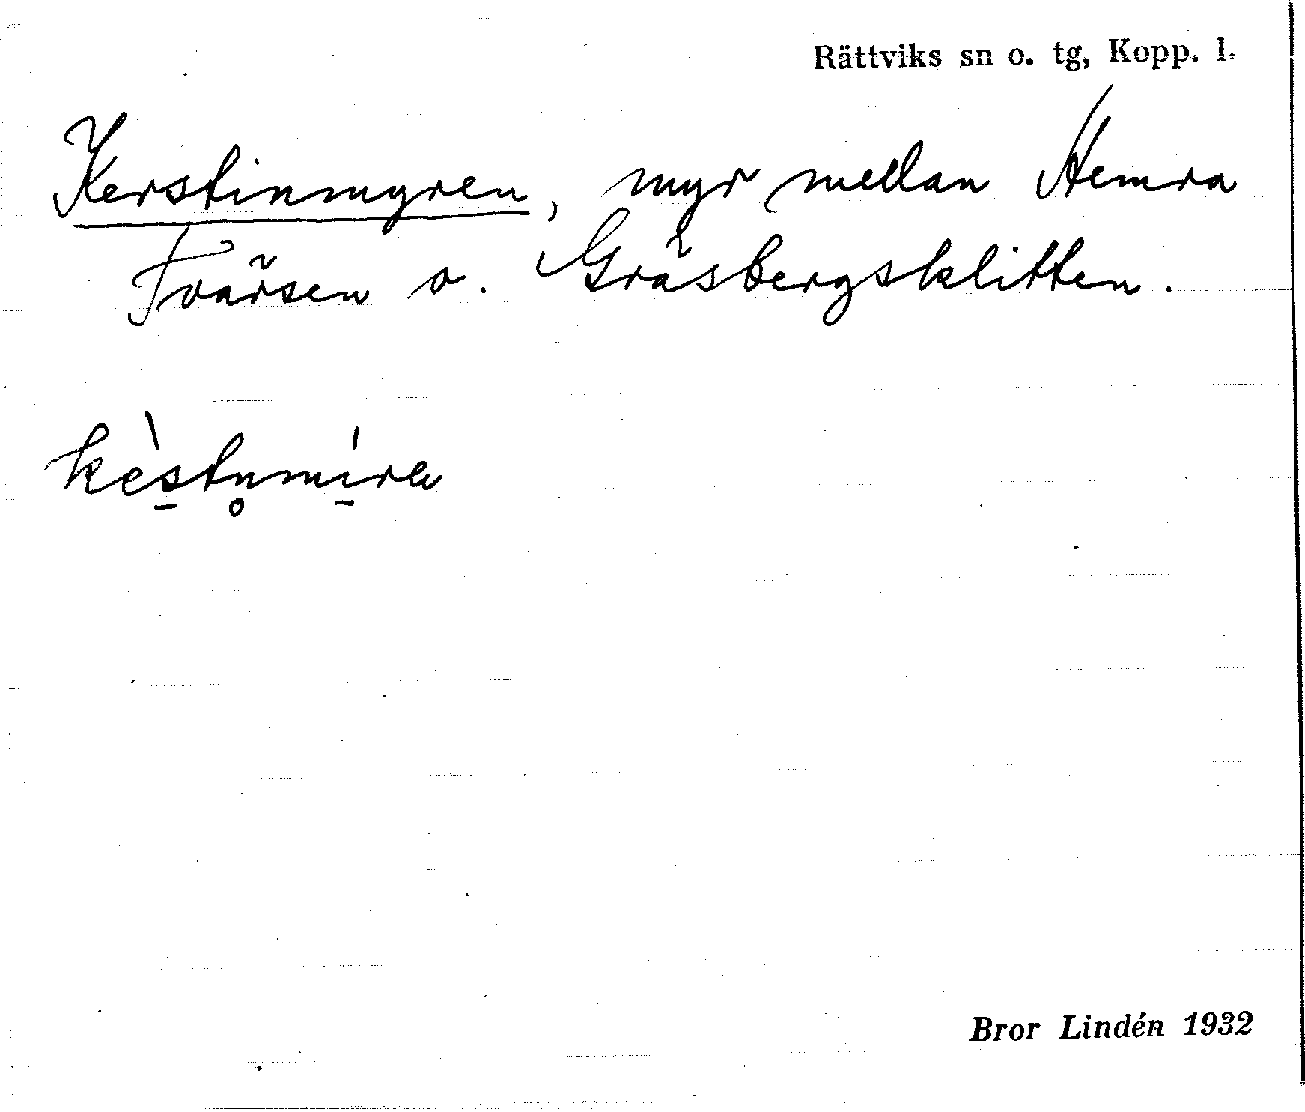 Rättviks sn o. tg, Kopp. l.
Kerstinmyren, myr mellan Hemra
Tvärsen o. Gräsbergsklitten.
kès̠tn̥mí̠ra
Bror Lindén 1932